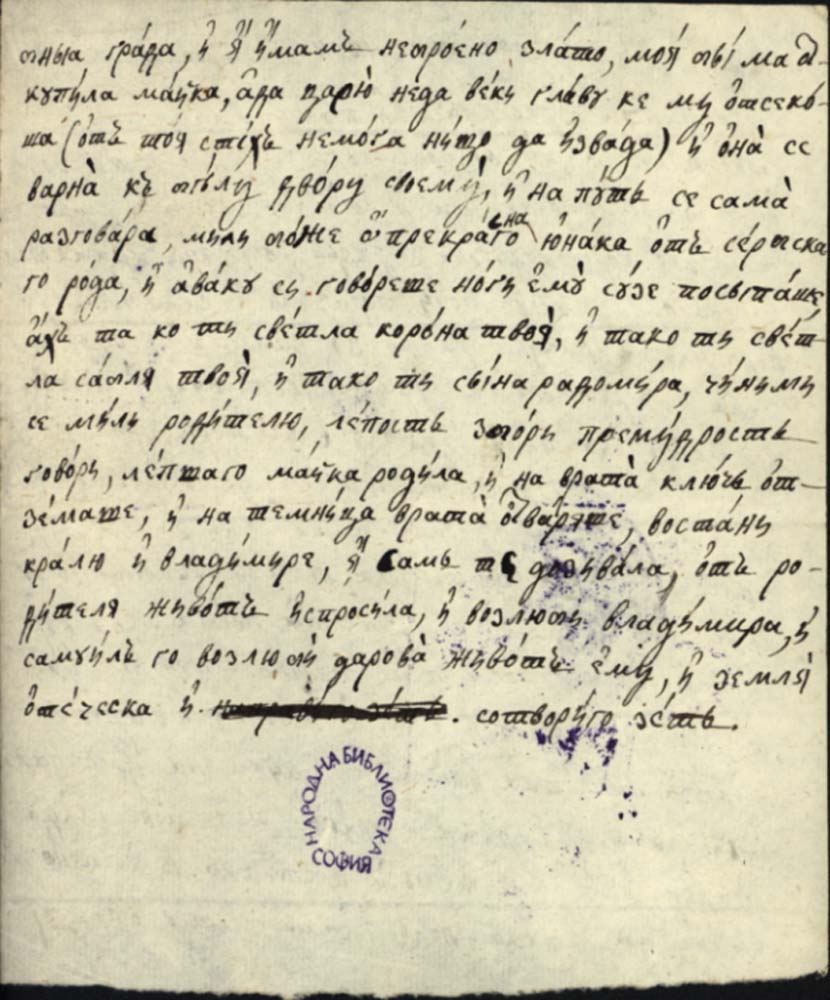 бныа града, и҆ ꙗ҆ и҆мамъ неброено злато, моꙗ бы ма ѿ-
купила маика, а҆да царю неда веки главу ке му ѿсеко-
ша (ѿ тоꙗ стихъ немога нищо да и҆звада) и҆ ѻна се
варна къ белу двору своему, и҆ на путь се сама
разговара, мили боже ѻ҆ прекраснаго юнака ѿ сербска
го рода, и҆ а҆ваку си говореше ноги е҆му сузе посыпаше,
а҆хъ та ко ти светла корона твоꙗ, и҆ тако ти свет-
ла саблꙗ твоꙗ, и҆ тако ти сына радомира, чини ми
се мили родителю, лепость збори премудрость
говори, лепшаго маика родила, и҆ на врата ключь ѿ-
земаше, и҆ на темница врата ѿвараше, востани
кралю и҆ владимире, ꙗ҆ самь те дозивала, ѿ ро-
дителꙗ животъ испросила, и҆ возлюби владимира, и҆
самуилъ го возлюби дарова животъ е҆му, и҆ землꙗ
ѿеческа и҆ . сотвори го зеть.
НАРОДНА БИБЛИОТЕКА
СОФИЯ